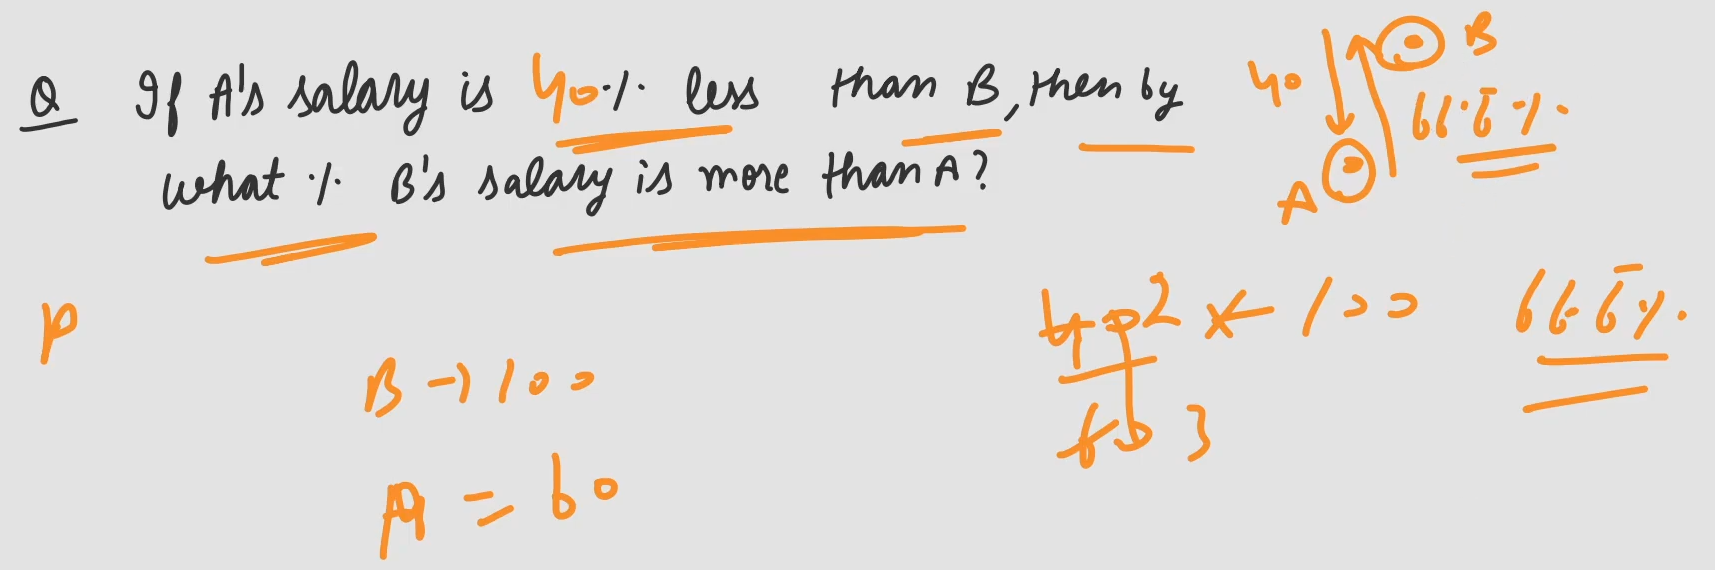 Q If A's salary is 40% less than B, then by
what % B's salary is more than A?
B
40
66.6̅%.
A
P
40 2 × 100
60 3
66.6̅%.
B → 100
A = 60